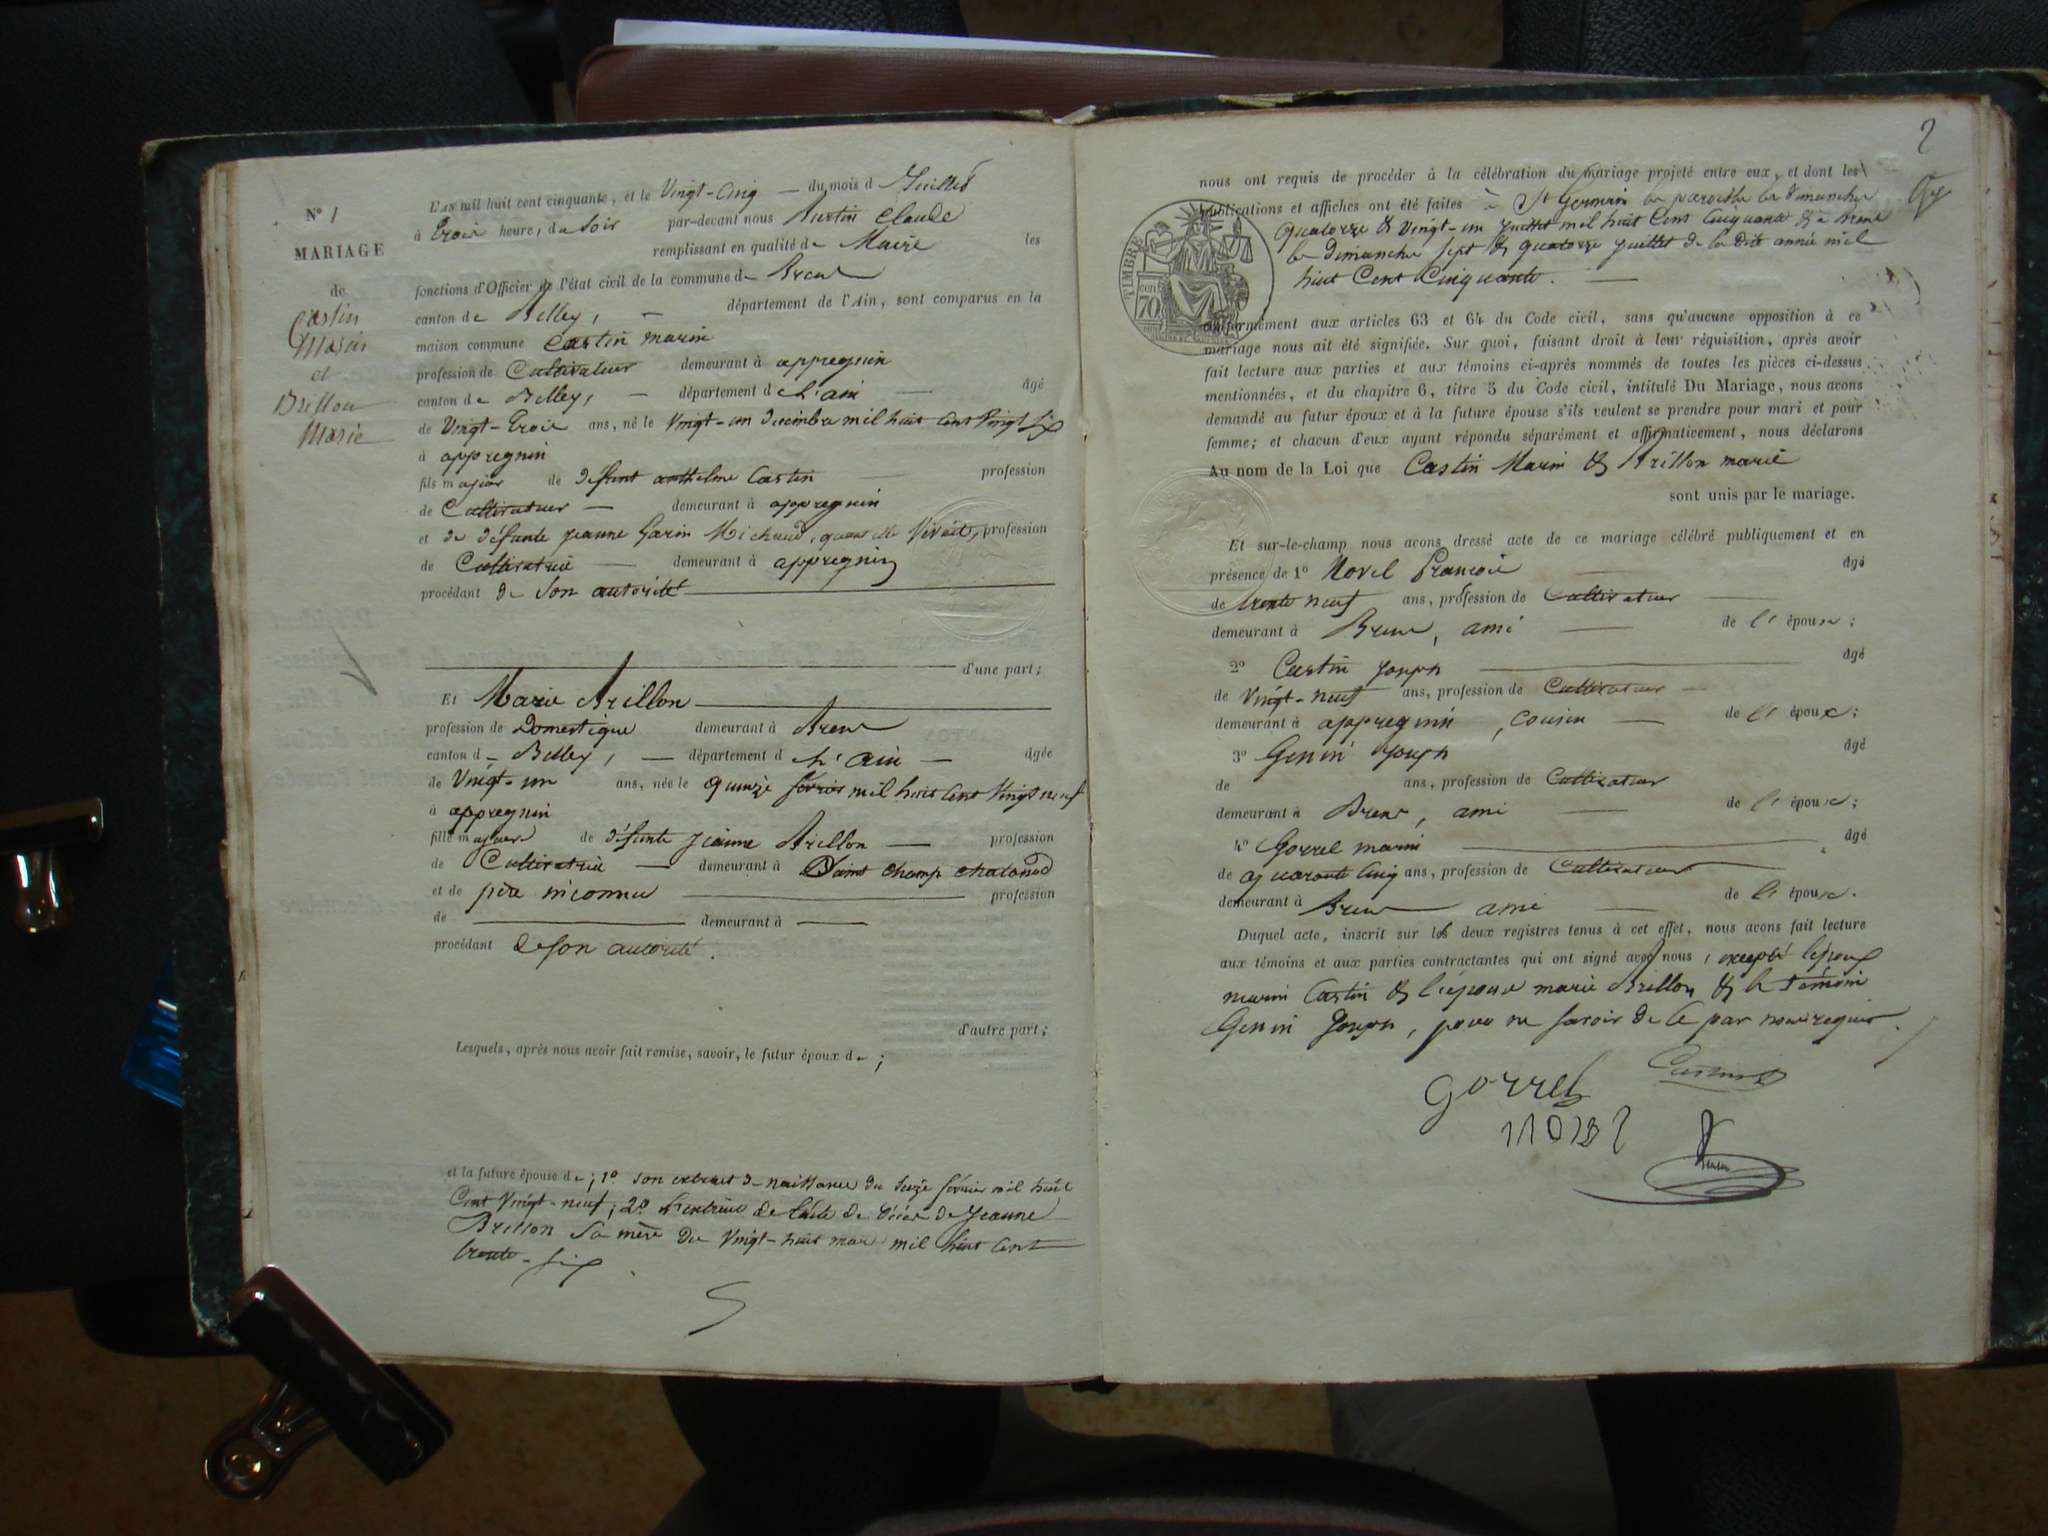 N° 1
MARIAGE
de
Castin
Marin
et
Brillon
Marie
L'AN mil huit cent cinquante, et le Vingt-cinq du mois d Juillet
à Trois heure, du Soir par-devant nous Claude
remplissant en qualité de Maire les
fonctions d'Officier de l'état civil de la commune de Brens
canton de Belley, département de l'Ain, sont comparus en la
maison commune Castin marin
profession de Cultivateur demeurant à appregnin
canton de Belley, département de L'ain âgé
de Vingt-Trois ans, né le Vingt-un Décembre mil huit Cent Vingt Six
à appregnin
fils majeur de défunt anthelme Castin profession
de Cultivateur demeurant à appregnin
et de défunte jeanne Garin Michaud, quand elle Vivait, profession
de Cultivatrice demeurant à appregnin
procédant de Son autorité
d'une part;
Et Marie Brillon
profession de Domestique demeurant à Brens
canton de Belley, département de L'ain âgée
de Vingt-un ans, née le quinze fevrier mil huit Cent Vingt neuf
à appregnin
fille majeure de défunte jeanne Brillon profession
de Cultivatrice demeurant à Saint Champ Chatonod
et de père inconnu profession
de demeurant à
procédant de son autorité.
d'autre part;
Lesquels, après nous avoir fait remise, savoir, le futur époux de;
et la future épouse de; 1° son extrait de naissance du Seize fevrier mil huit
Cent Vingt-neuf; 2° L'extrait de l'acte de Décès de Jeanne
Brillon Sa mère du Vingt-huit mai mil huit Cent
trente-six
2
nous ont requis de procéder à la célébration du mariage projeté entre eux, et dont les
publications et affiches ont été faites à St Germain les paroisses les dimanches
quatorze & Vingt-un juillet mil huit Cent Cinquante & à Brens
les dimanches Sept & quatorze juillet de la dite année mil
huit Cent Cinquante.
TIMBRE
70
conformément aux articles 63 et 64 du Code civil, sans qu'aucune opposition à ce
mariage nous ait été signifiée. Sur quoi, faisant droit à leur réquisition, après avoir
fait lecture aux parties et aux témoins ci-après nommés de toutes les pièces ci-dessus
mentionnées, et du chapitre 6, titre 5 du Code civil, intitulé Du Mariage, nous avons
demandé au futur époux et à la future épouse s'ils veulent se prendre pour mari et pour
femme; et chacun d'eux ayant répondu séparément et affirmativement, nous déclarons
Au nom de la Loi que Castin Marin & Brillon marie
sont unis par le mariage.
Et sur-le-champ nous avons dressé acte de ce mariage célébré publiquement et en
présence de 1° Morel François âgé
de trente neuf ans, profession de Cultivateur
demeurant à Brens, ami de l'épouse;
2° Castin Joseph âgé
de Vingt-neuf ans, profession de Cultivateur
demeurant à appregnin, cousin de l'époux;
3° Genin Joseph âgé
de ans, profession de Cultivateur
demeurant à Brens, ami de l'épouse;
4° Gorrel marin âgé
de quarante Cinq ans, profession de Cultivateur
demeurant à Brens ami de l'épouse.
Duquel acte, inscrit sur les deux registres tenus à cet effet, nous avons fait lecture
aux témoins et aux parties contractantes qui ont signé avec nous, excepté l'époux
marin Castin & l'épouse marie Brillon & le témoin
Genin Joseph, pour ne savoir de ce par nous requis.
Gorrel Castin